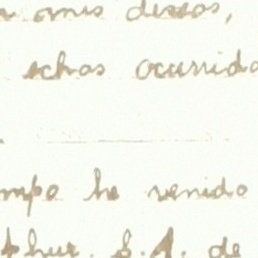 a mis deseos,
echos ocurrido
mpo he venido
thur. S.A. de